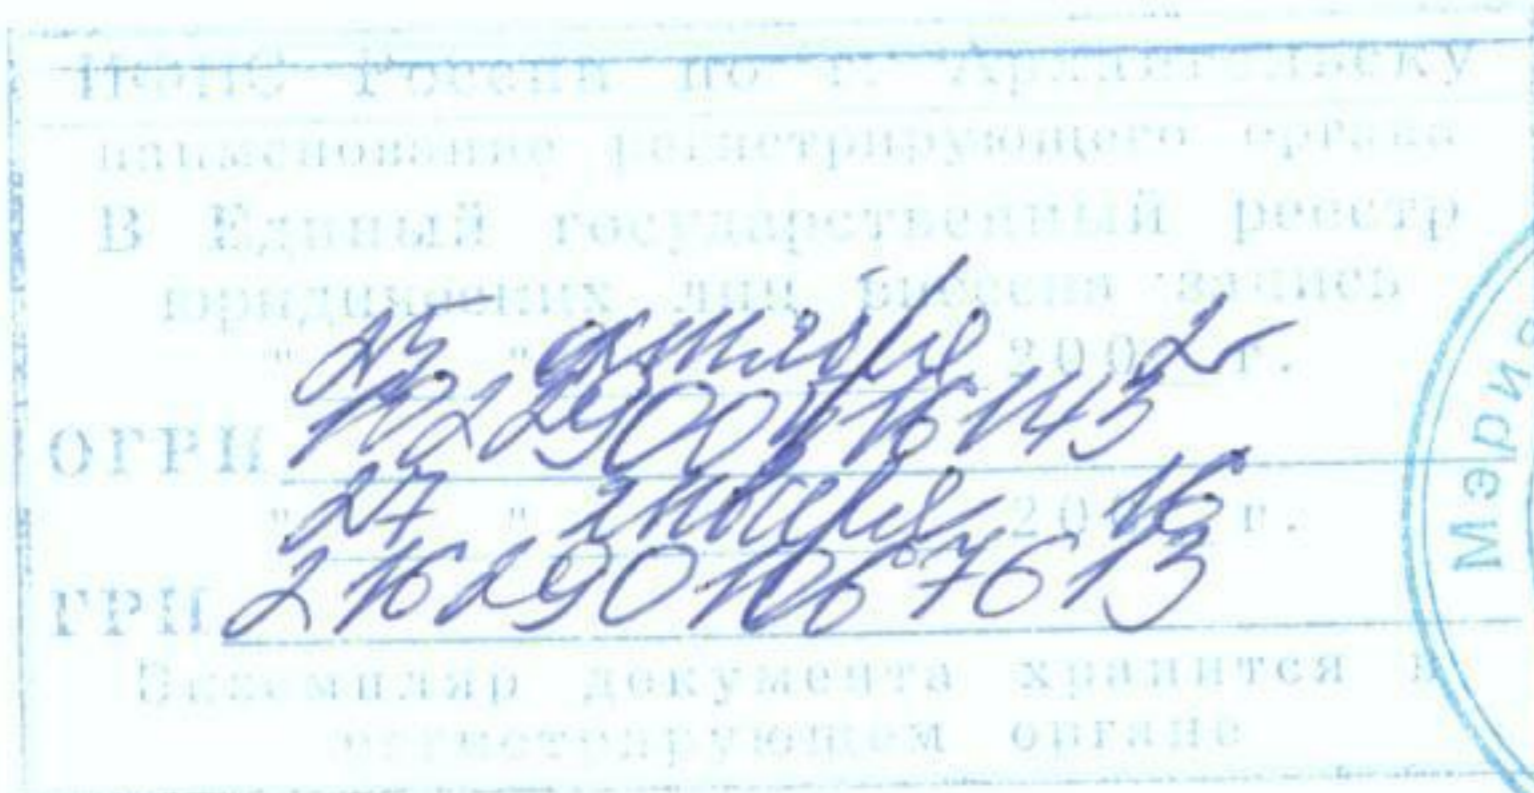 ИФНС России по г. Архангельску
наименование регистрирующего органа
В Единый государственный реестр
юридических лиц внесена запись
"25" октября 2002 г.
ОГРН 1022900516143
"27" января 2016 г.
ГРН 2162901067613
Экземпляр документа хранится в
регистрирующем органе
Мэрия